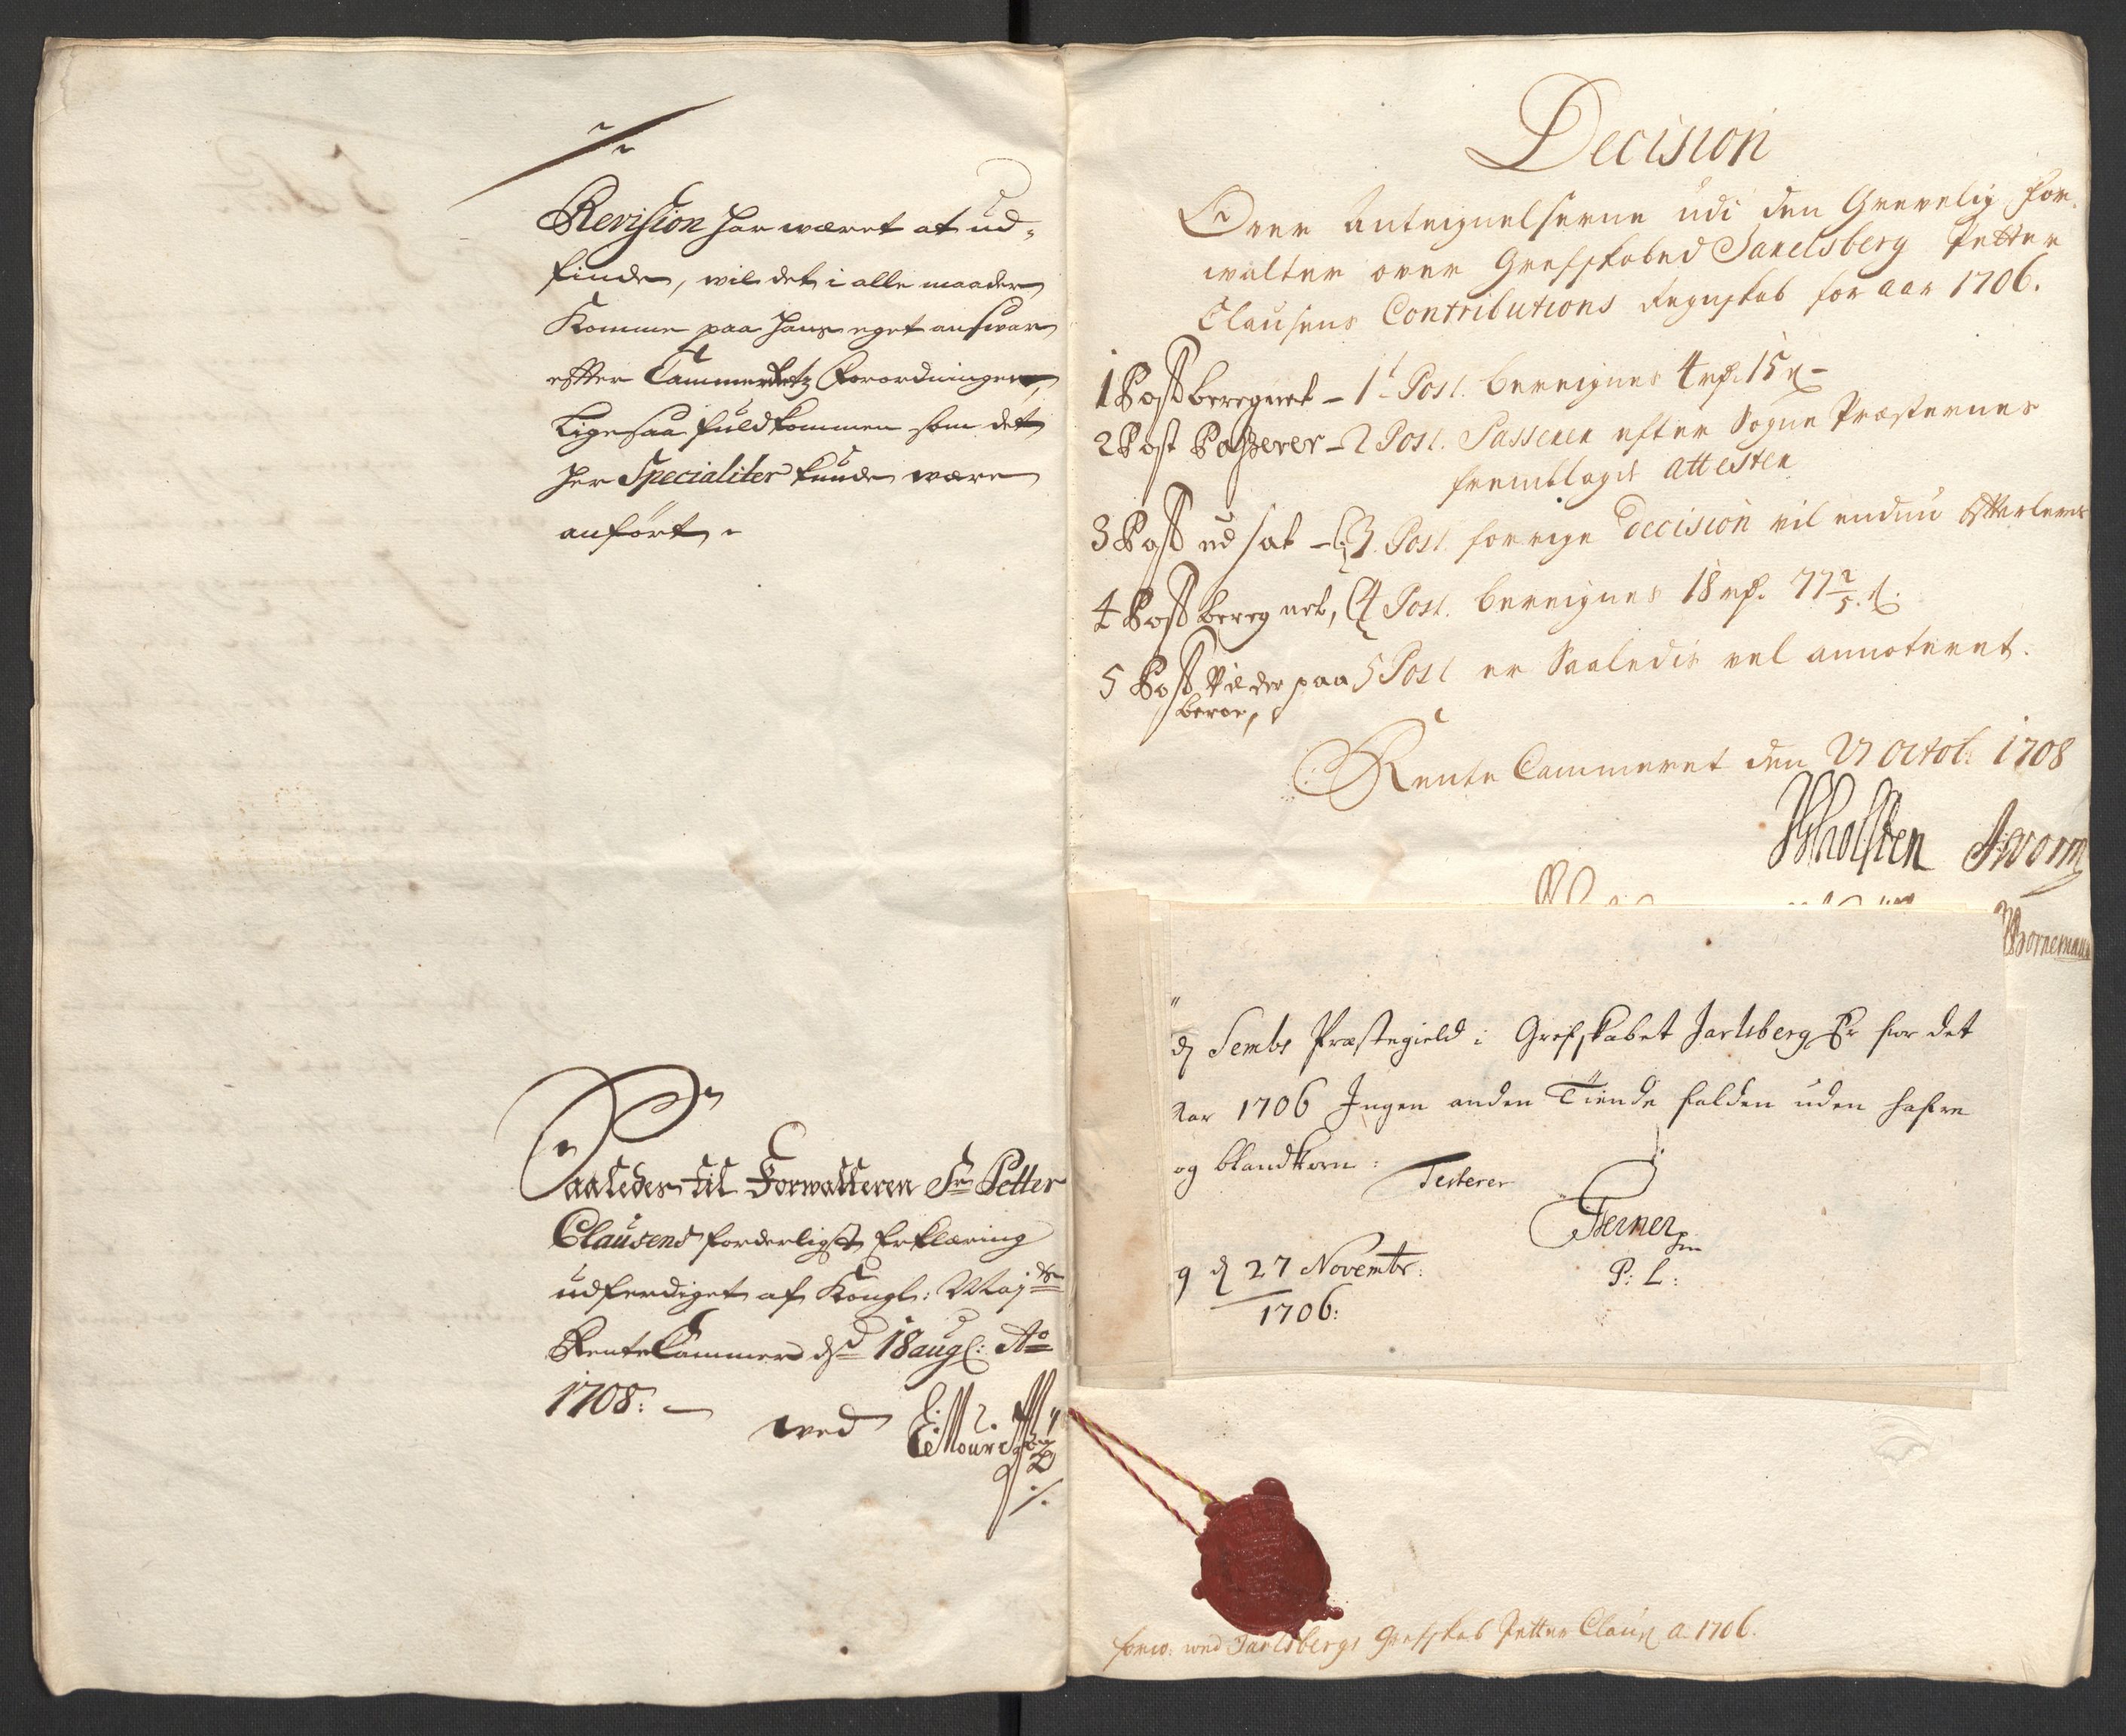 Revision har wæret at ud-
finde, wil det i alle maader
Komme paa hans eget answar
efter Cammerretz Forordningen,
Ligesaa fuldkommen som det
her Specialiter kunde være
anført.
Saaledes til Forwalteren Sr. Petter
Clausens forderligste Erklæring
udferdiget af Kongl: Maj:ts
RenteCammer d. 18 aug: Ao
1708. —
wed
Decision
Over Antegnelserne udi den Grevelig for-
walter over Grefskabed Jarelsberg Petter
Clausens Contributions Regnskab for aar 1706.
1 Post beregnet – 1t Post. beregnes 4 rd. 15 s –
2 Post Passerer – 2 Post. Passerer efter Sogne Præsternes
fremblagde attester
3 Post ud sat – 3. Post. forrige Decision vil endnu efterleves
4 Post bereg net, 4 Post. beregnes 18 rd. 77 2/5 s.
5 Post Vil der paa 5 Post er Saaledis vel annoteret.
beroe,
Rente Cammeret den 27 Octob: 1708
Holsten Worm
Bornemann
d Sembs Præstegield i Grefskabet Jarlsberg Er for det
aar 1706 Ingen anden Tiende falden uden hafre
og blandkorn:
Testerer
Ferner
g d 27 Novembr:
P: L:
1706:
forw: wed Jarlsbergs Grefskab Petter Claus: a 1706.